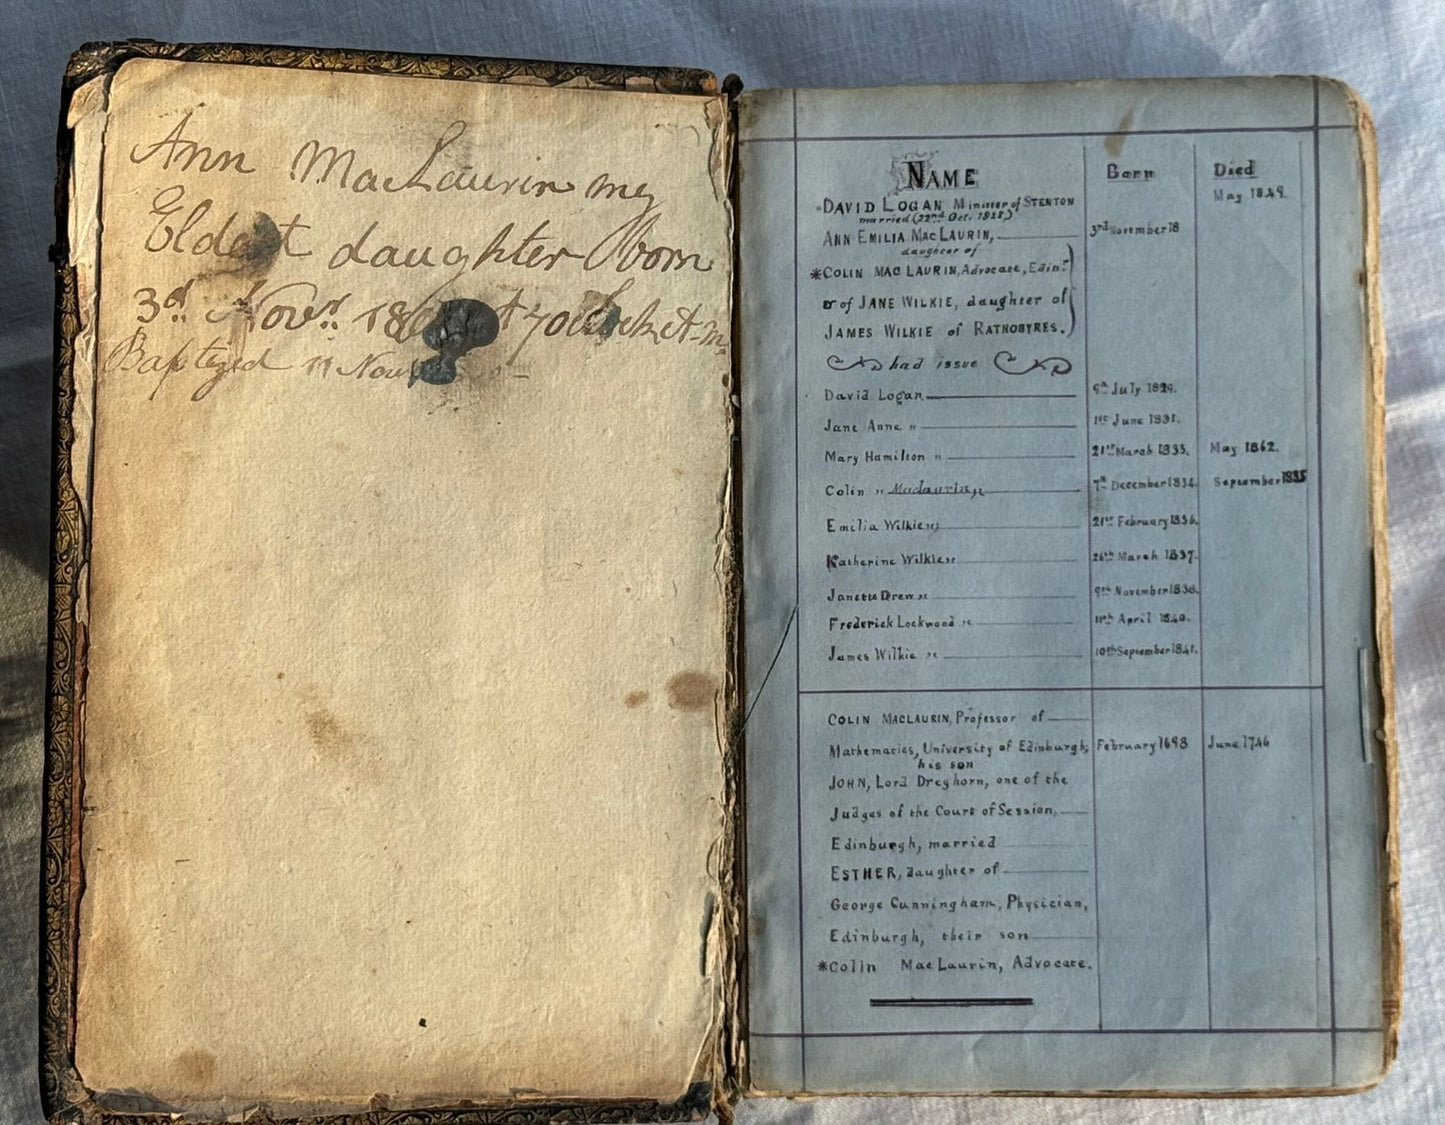 Ann MacLaurin my
Eldest daughter born
3d. Novr. 18 at 7 oClock
Baptized 11 Nov
NAME Born Died
DAVID LOGAN Minister of STENTON May 1849.
married (22nd Oct. 1828)
ANN EMILIA MACLAURIN, 3rd November 18
daughter of
*COLIN MACLAURIN, Advocate, Edinr.
& of JANE WILKIE, daughter of
JAMES WILKIE of RATHOBYRES.
had issue
David Logan July 1829.
Jane Anne " 1st June 1831.
Mary Hamilton " 21st March 1833. May 1862.
Colin " Maclaurin " 7th December 1834. September 1835
Emilia Wilkie " 21st February 1836.
Katherine Wilkie " 26th March 1837.
Janette Drew " 9th November 1838.
Frederick Lockwood " 11th April 1840.
James Wilkie " 10th September 1841.
COLIN MACLAURIN, Professor of
Mathematics, University of Edinburgh; February 1698 June 1746
his son
JOHN, Lord Dreghorn, one of the
Judges of the Court of Session,
Edinburgh, married
ESTHER, daughter of
George Cunningham, Physician,
Edinburgh, their son
*Colin MacLaurin, Advocate.